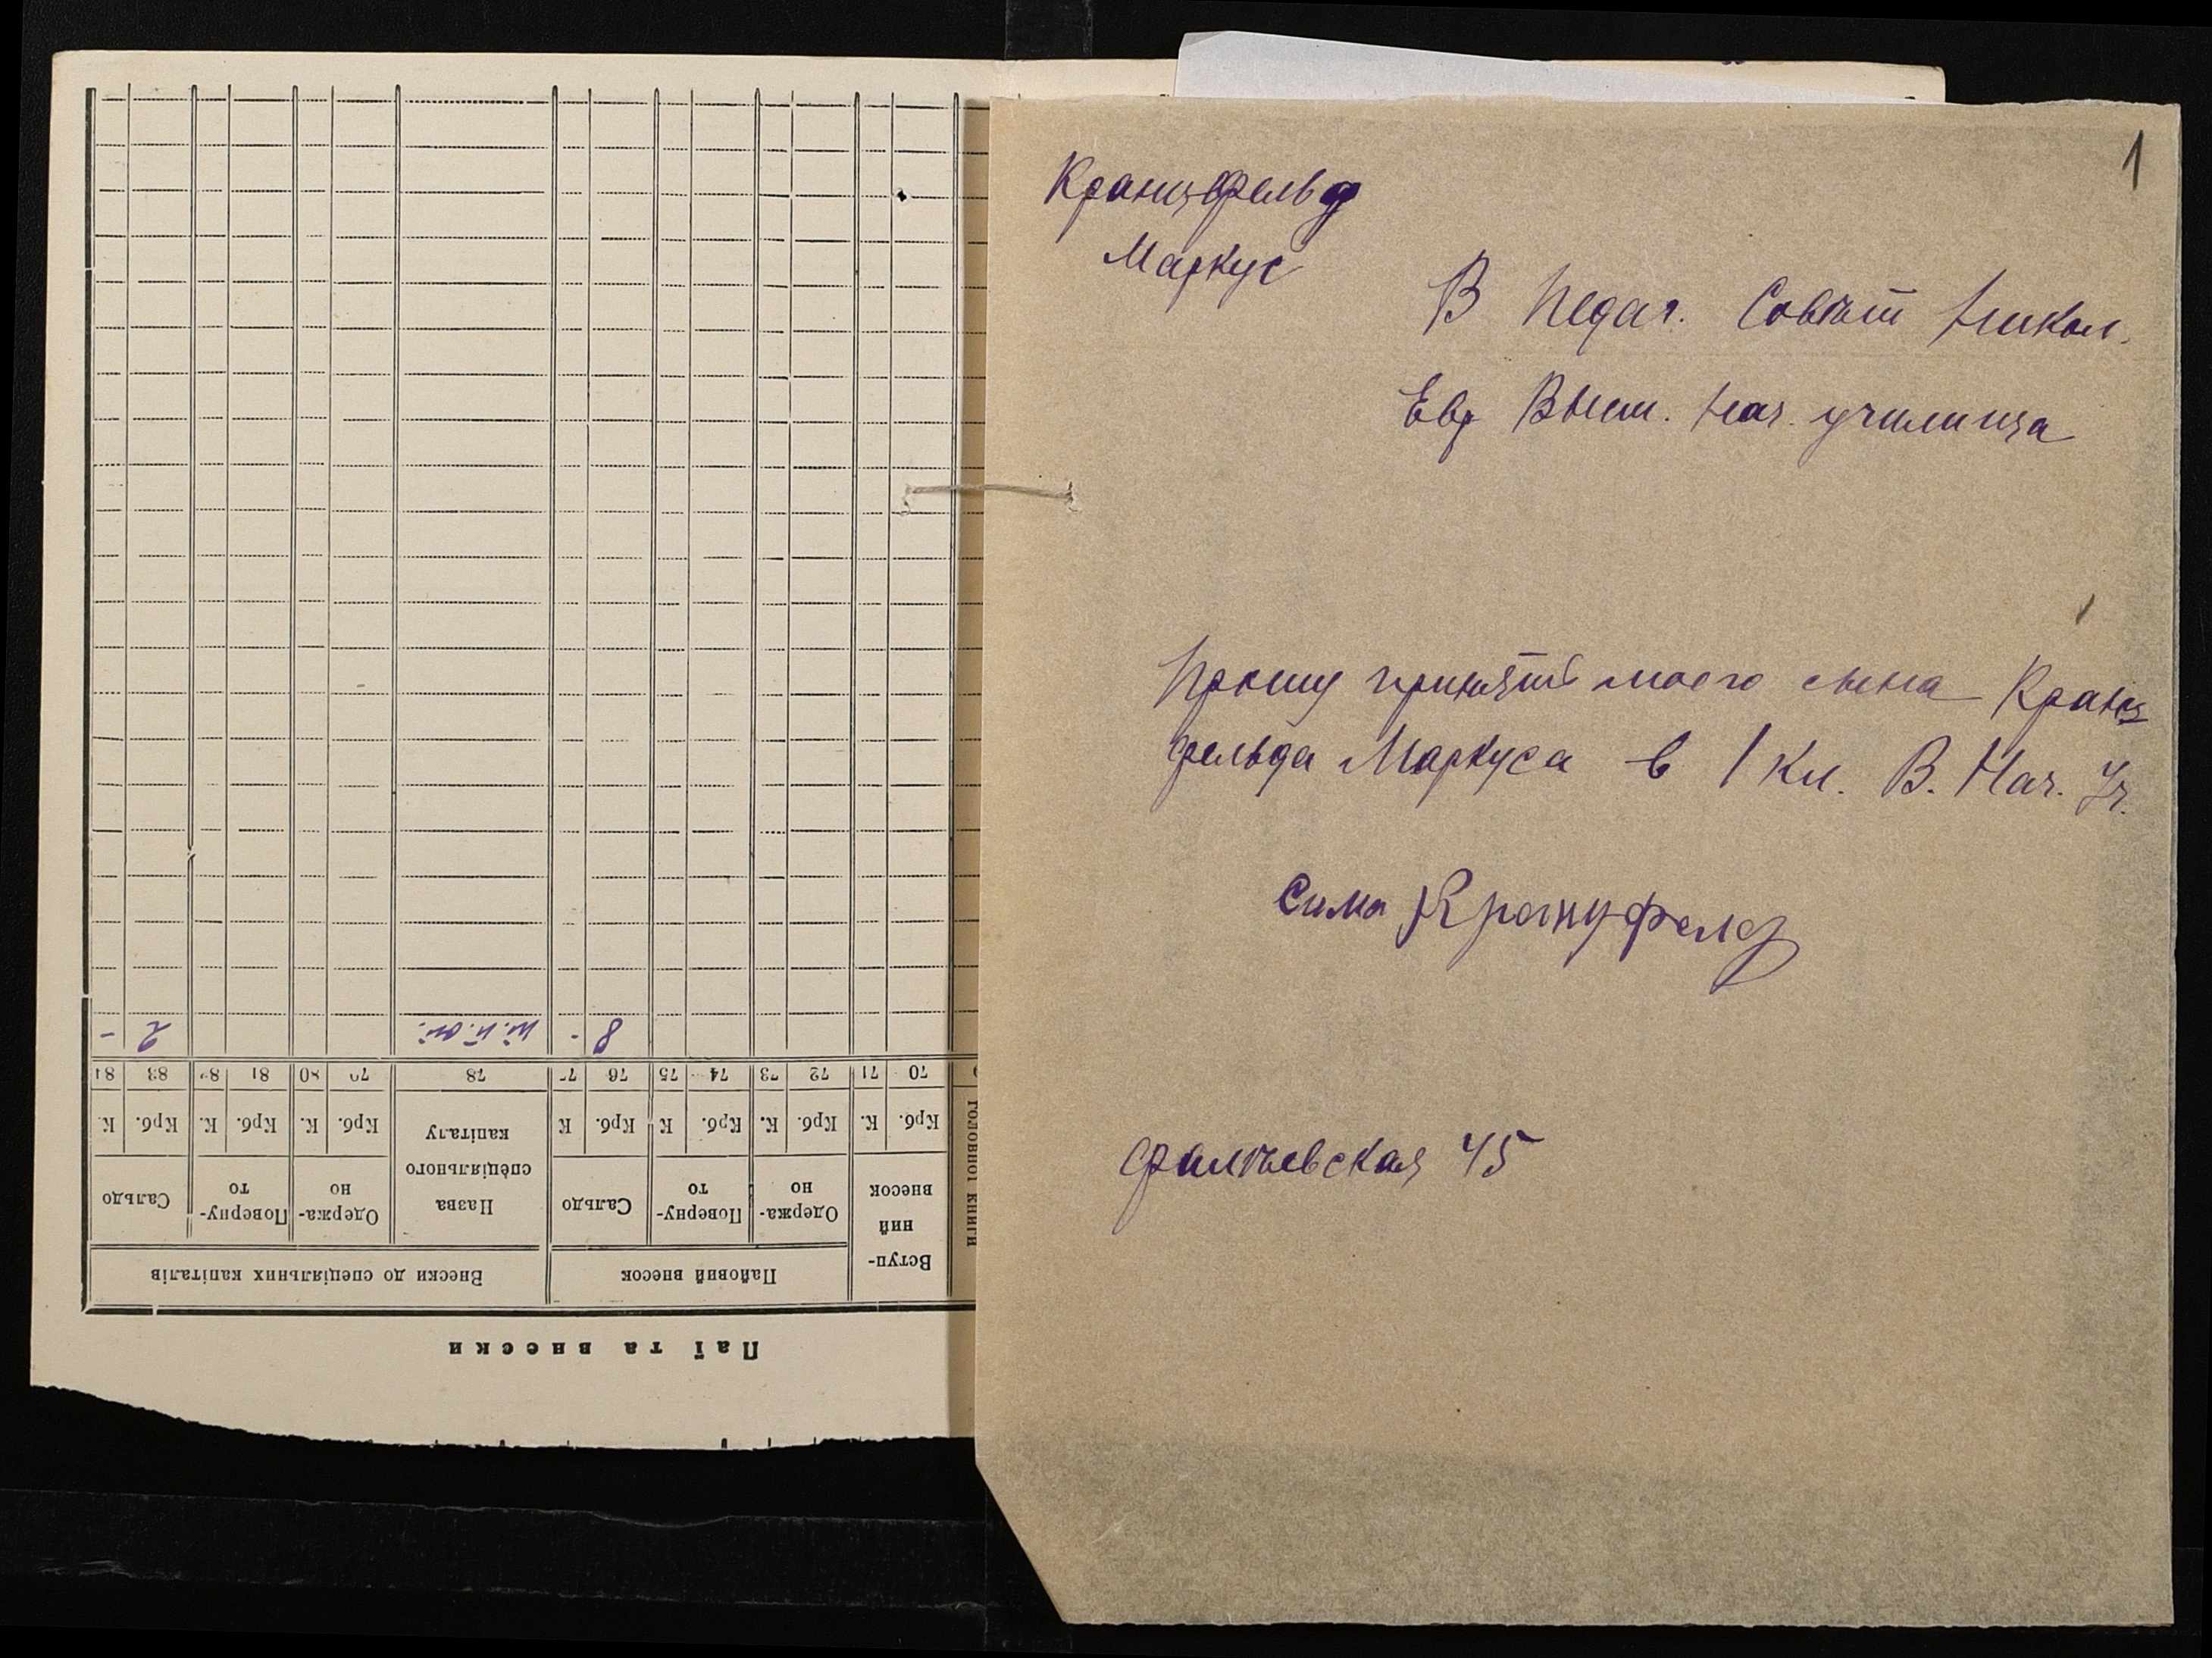 Паї та внески
Вступ-
ний
внесок
Пайовий внесок
Внески до спеціяльних капіталів
Одержа-
но
Поверну-
то
Сальдо
Назва
спеціяльного
капіталу
Одержа-
но
Поверну-
то
Сальдо
головної книги
Крб. К. Крб. К. Крб. К Крб. К Крб. К. Крб. К. Крб. К.
70 71 72 73 74 75 76 77 78 79 80 81 82 83 84
8 - 2 -
1
Кранцфельд
Маркус
В Педаг. Совѣт Никол.
Евр Высш. Нач. училища
Прошу принять моего сына Кранц
фельда Маркуса в 1 Кл. В. Нач. Уч.
Сима Кранцфелд
Фалѣевская 45